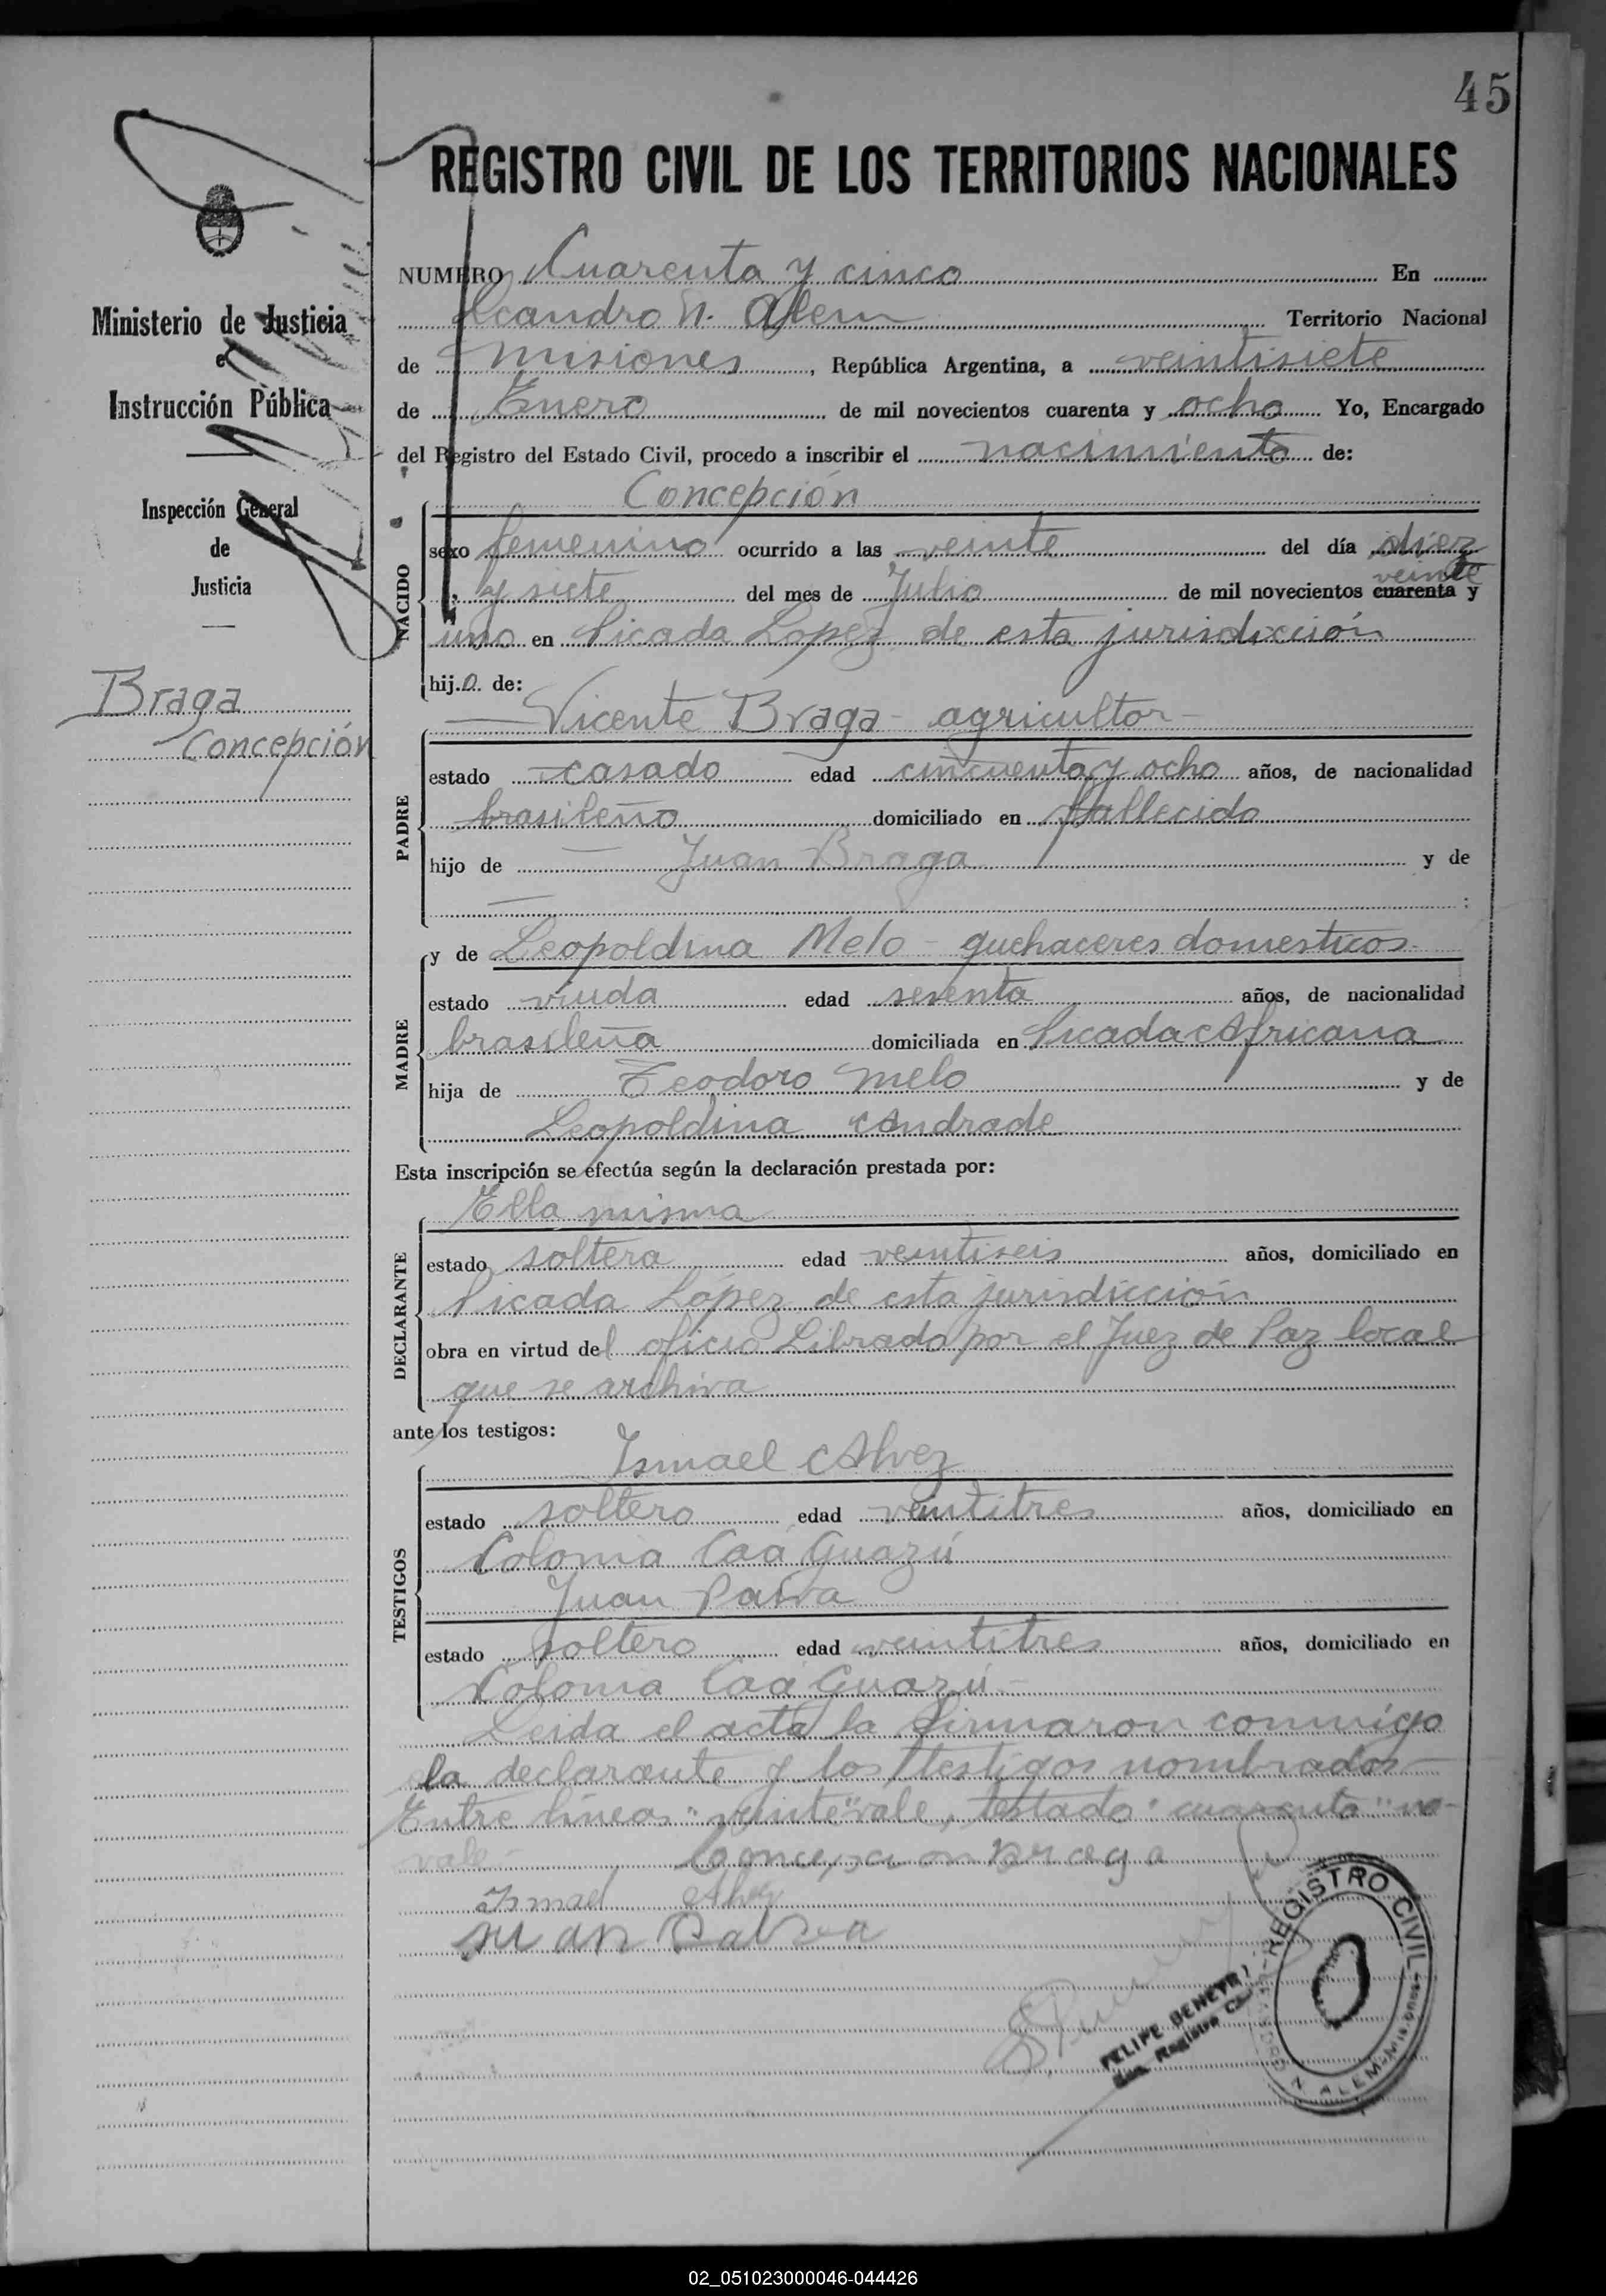 45
REGISTRO CIVIL DE LOS TERRITORIOS NACIONALES
Ministerio de Justicia
e
Instrucción Pública
Inspección General
de
Justicia
Braga
Concepción
NUMERO Cuarenta y cinco En
Leandro N. Alem Territorio Nacional
de Misiones, República Argentina, a veintisiete
de Enero de mil novecientos cuarenta y ocho Yo, Encargado
del Registro del Estado Civil, procedo a inscribir el nacimiento de:
Concepción
NACIDO
sexo femenino ocurrido a las veinte del día diez
veinte
y siete del mes de Julio de mil novecientos cuarenta y
uno en Picada Lopez de esta jurisdicción
hija de:
Vicente Braga - agricultor -
PADRE
estado casado edad cincuenta y ocho años, de nacionalidad
brasileño domiciliado en fallecido
hijo de — Juan Braga y de
— :
y de Leopoldina Melo - quehaceres domesticos.
MADRE
estado viuda edad años, de nacionalidad
brasileña domiciliada en Picada Africana
hija de Teodoro Melo y de
Leopoldina Andrade
Esta inscripción se efectúa según la declaración prestada por:
Ella misma
DECLARANTE
estado soltera edad veintiseis años, domiciliado en
Picada López de esta jurisdicción
obra en virtud del oficio Librado por el Juez de Paz local
que se archiva
ante los testigos:
Ismael Alvez
TESTIGOS
estado soltero edad veintitres años, domiciliado en
Colonia Caá Guazú
Juan Paiva
estado soltero edad veintitres años, domiciliado en
Colonia Caá Guazú -
Leida el acta la firmaron conmigo
la declarante y los testigos nombrados -
Entre líneas: "veinte" vale, testado "cuarenta" no
vale -
Concepcion Braga
Ismael Alvez
Juan Paiva
FELIPE BENETRI
Enc. Registro Civil
REGISTRO CIVIL
LEANDRO N. ALEM - Misiones
02_051023000046-044426